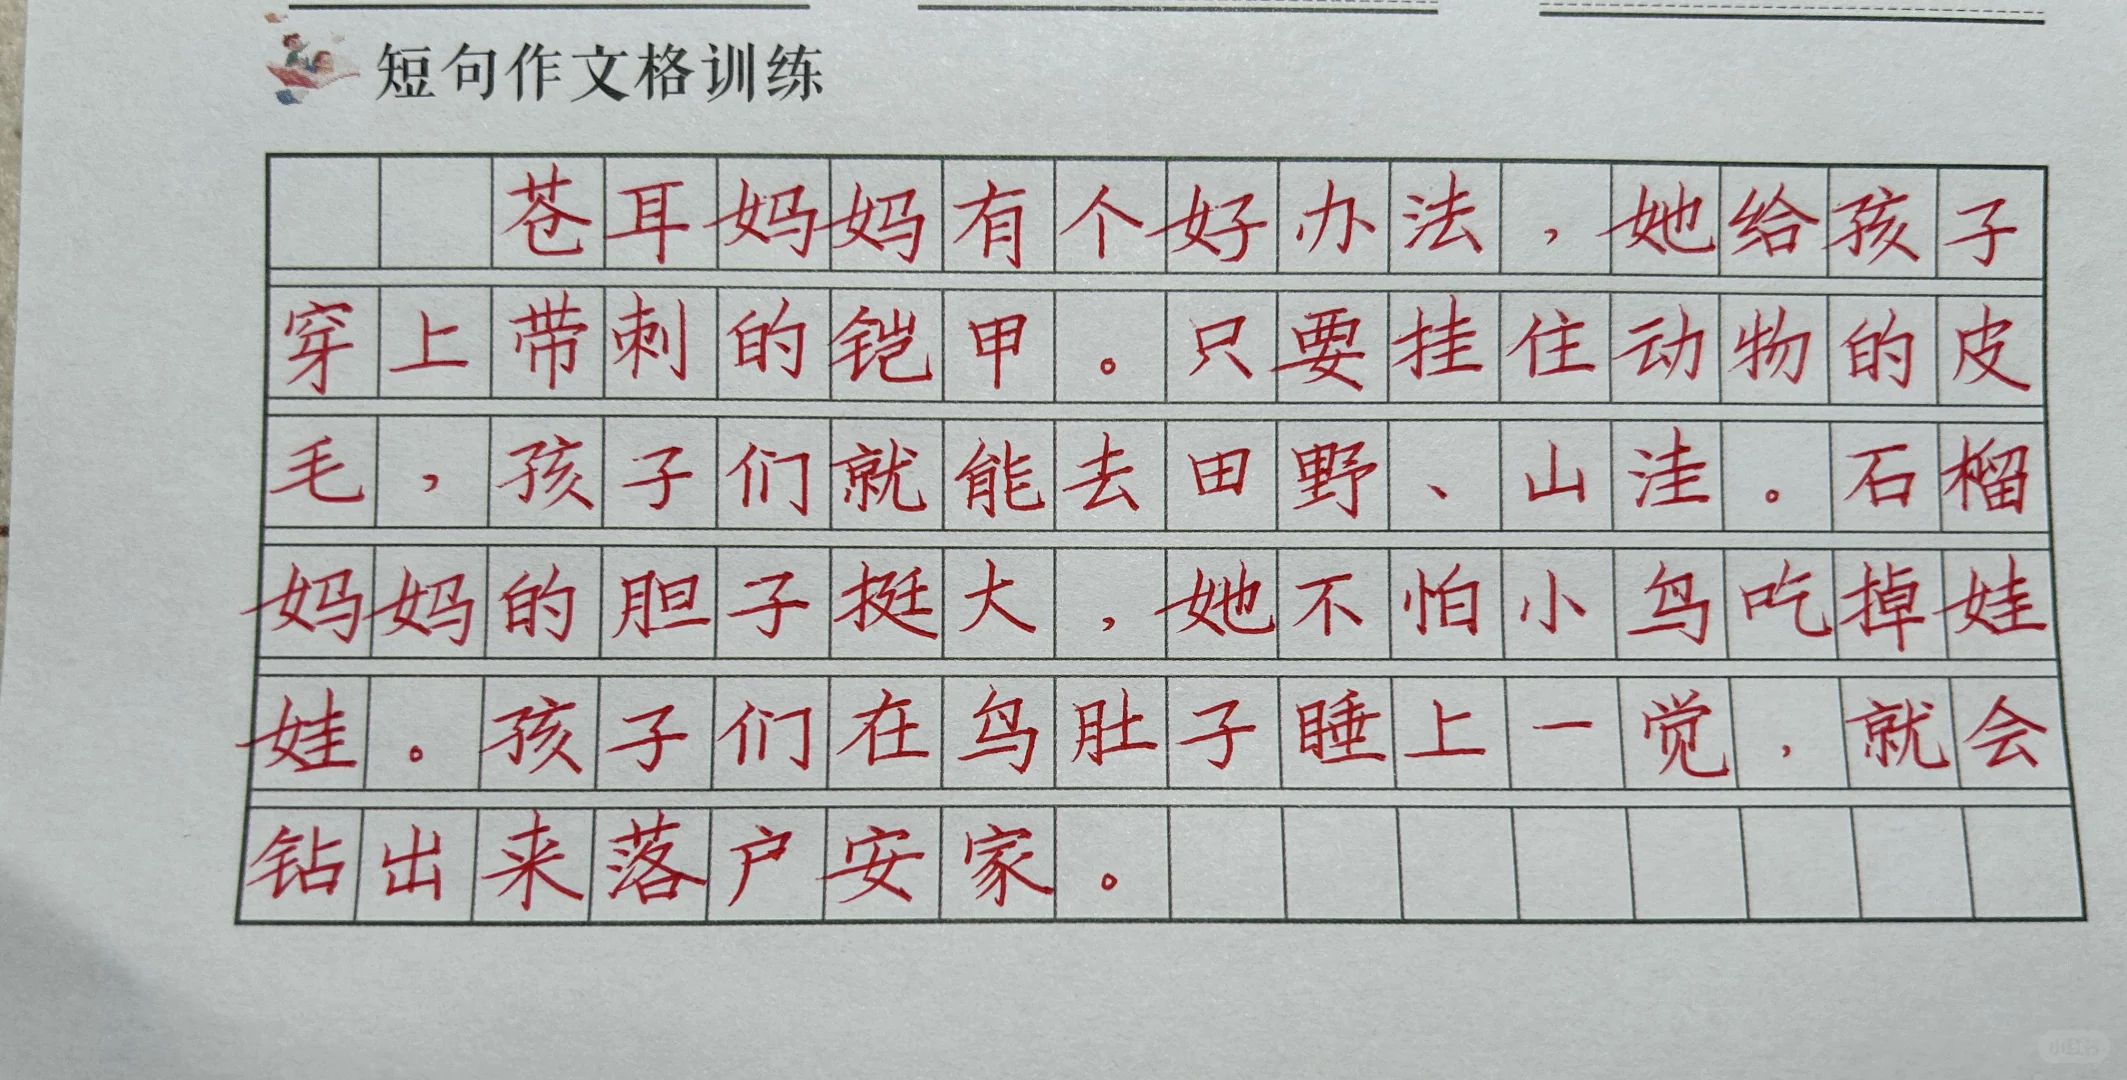 短句作文格训练
苍耳妈妈有个好办法，她给孩子
穿上带刺的铠甲。只要挂住动物的皮
毛，孩子们就能去田野、山洼。石榴
妈妈的胆子挺大，她不怕小鸟吃掉娃
娃。孩子们在鸟肚子睡上一觉，就会
钻出来落户安家。
小红书